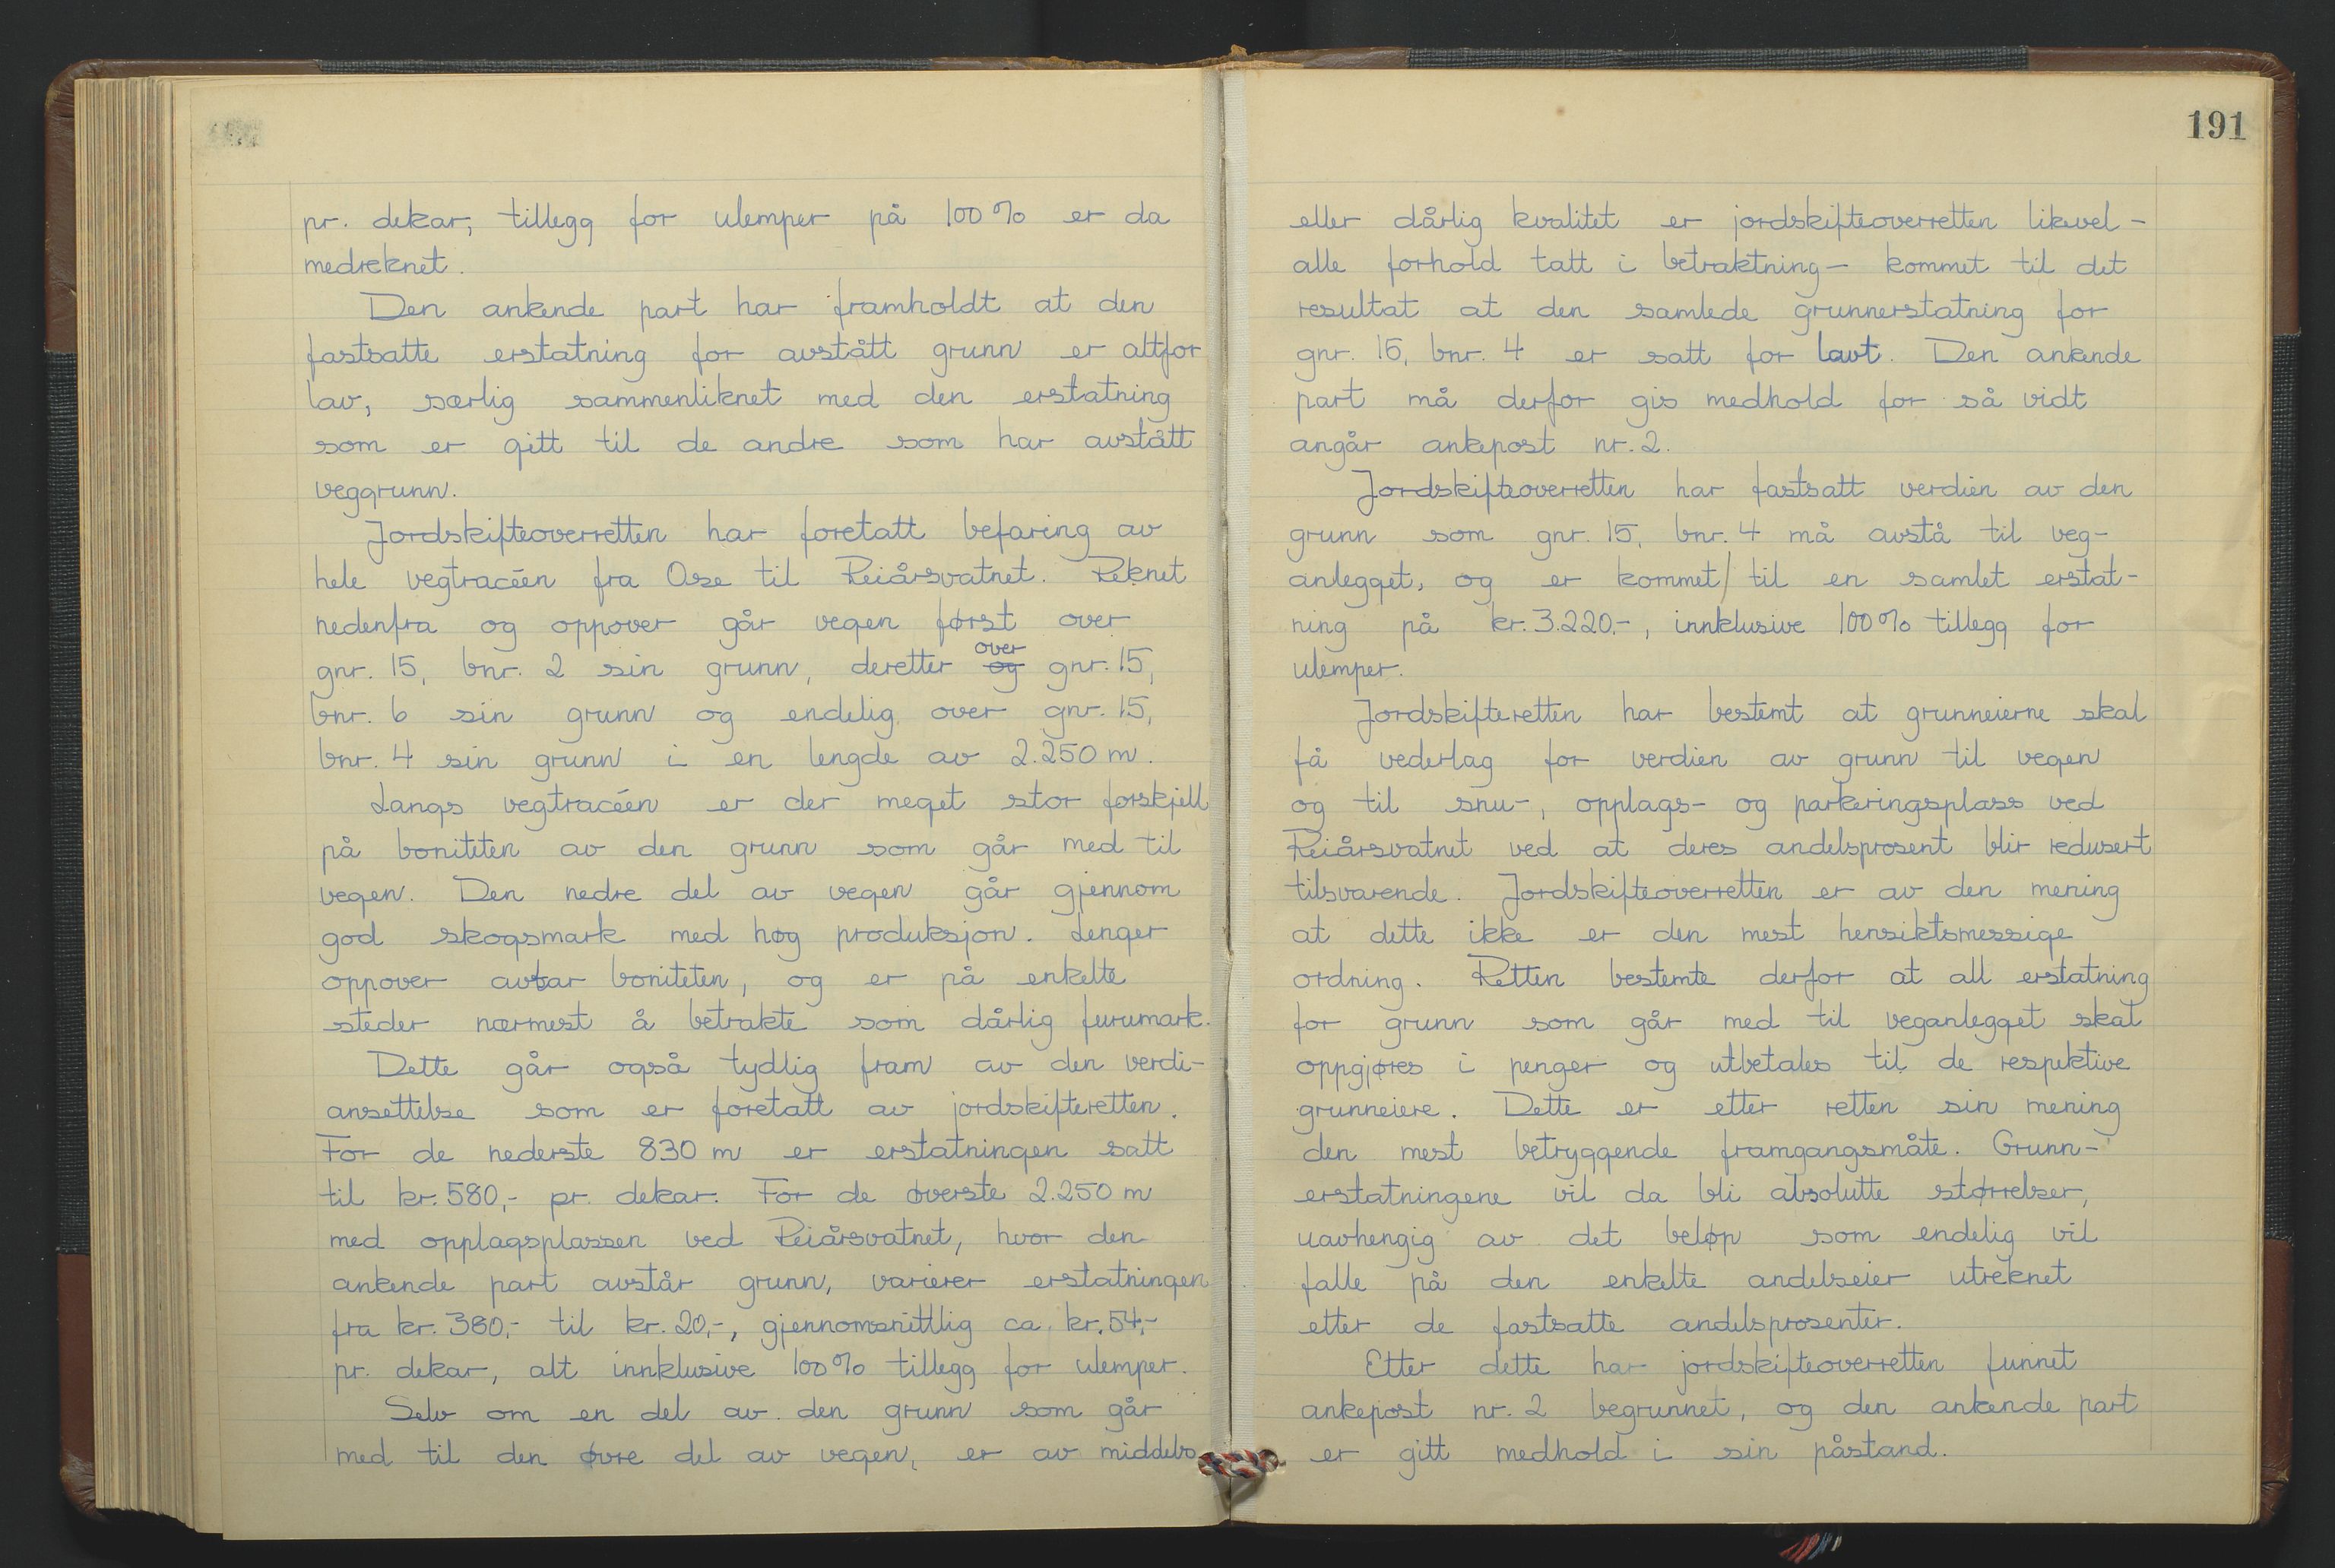 pr. dekar, tillegg for ulemper på 100% er da
medreknet.
Den ankende part har framholdt at den
fastsatte erstatning for avstått grunn er altfor
lav, særlig sammenliknet med den erstatning
som er gitt til de andre som har avstått
veggrunn.
Jordskifteoverretten har foretatt befaring av
hele vegtracéen fra Ose til Reiårsvatnet. Reknet
nedenfra og oppover går vegen først over
gnr. 15, bnr. 2 sin grunn, deretter og over gnr. 15,
bnr. 6 sin grunn og endelig over gnr. 15,
bnr. 4 sin grunn i en lengde av 2.250 m.
Langs vegtracéen er der meget stor forskjell
på boniteten av den grunn som går med til
vegen. Den nedre del av vegen går gjennom
god skogsmark med høg produksjon. Lenger
oppover avtar boniteten, og er på enkelte
steder nærmest å betrakte som dårlig furumark.
Dette går også tydlig fram av den verdi-
ansettelse som er foretatt av jordskifteretten.
For de nederste 830 m er erstatningen satt
til kr. 580,- pr. dekar. For de øverste 2.250 m
med opplagsplassen ved Reiårsvatnet, hvor den
ankende part avstår grunn, varierer erstatningen
fra kr. 380,- til kr. 20,-, gjennomsnittlig ca. kr. 54,-
pr. dekar, alt innklusive 100% tillegg for ulemper.
Selv om en del av den grunn som går
med til den øvre del av vegen, er av middels
191
eller dårlig kvalitet er jordskifteoverretten likevel -
alle forhold tatt i betraktning - kommet til det
resultat at den samlede grunnerstatning for
gnr. 15, bnr. 4 er satt for lavt. Den ankende
part må derfor gis medhold for så vidt
angår ankepost nr. 2.
Jordskifteoverretten har fastsatt verdien av den
grunn som gnr. 15, bnr. 4 må avstå til veg-
anlegget, og er kommet/ til en samlet erstat-
ning på kr. 3.220,-, innklusive 100% tillegg for
ulemper.
Jordskifteretten har bestemt at grunneierne skal
få vederlag for verdien av grunn til vegen
og til snu-, opplags- og parkeringsplass ved
Reiårsvatnet ved at deres andelsprosent blir redusert
tilsvarende. Jordskifteoverretten er av den mening
at dette ikke er den mest hensiktsmessige
ordning. Retten bestemte derfor at all erstatning
for grunn som går med til veganlegget skal
oppgjøres i penger og utbetales til de respektive
grunneiere. Dette er etter retten sin mening
den mest betryggende framgangsmåte. Grunn-
erstatningene vil da bli absolutte størrelser,
uavhengig av det beløp som endelig vil
falle på den enkelte andelseier utreknet
etter de fastsatte andelsprosenter.
Etter dette har jordskifteoverretten funnet
ankepost nr. 2 begrunnet, og den ankende part
er gitt medhold i sin påstand.